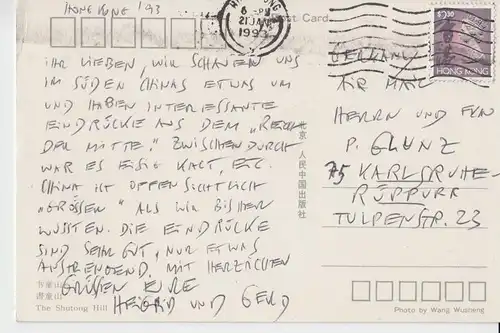 HONG KONG '93
Post Card
6 - PM
21 JAN
1993
HONG KONG
IHR LIEBEN, WIR SCHAUEN UNS
IM SÜDEN CHINAS ETWAS UM
UND HABEN INTERESSANTE
EINDRÜCKE AUS DEM „REICH
DER MITTE". ZWISCHENDURCH
WAR ES EISIG KALT, ETC.
CHINA IST OFFENSICHTLICH
„GRÖSSER" ALS WIR BISHER
WUSSTEN. DIE EINDRÜCKE
SIND SEHR GUT, NUR ETWAS
ANSTRENGEND. MIT HERZLICHEN
GRÜSSEN EURE
HEIGRID UND GERD
GERMANY
AIR MAIL
HERRN UND FRAU
P. GLUNZ
75 KARLSRUHE-
RÜPPURR
TULPENSTR. 23
北京 人民中国出版社
书童山
The Shutong Hill
Photo by Wang Wusheng